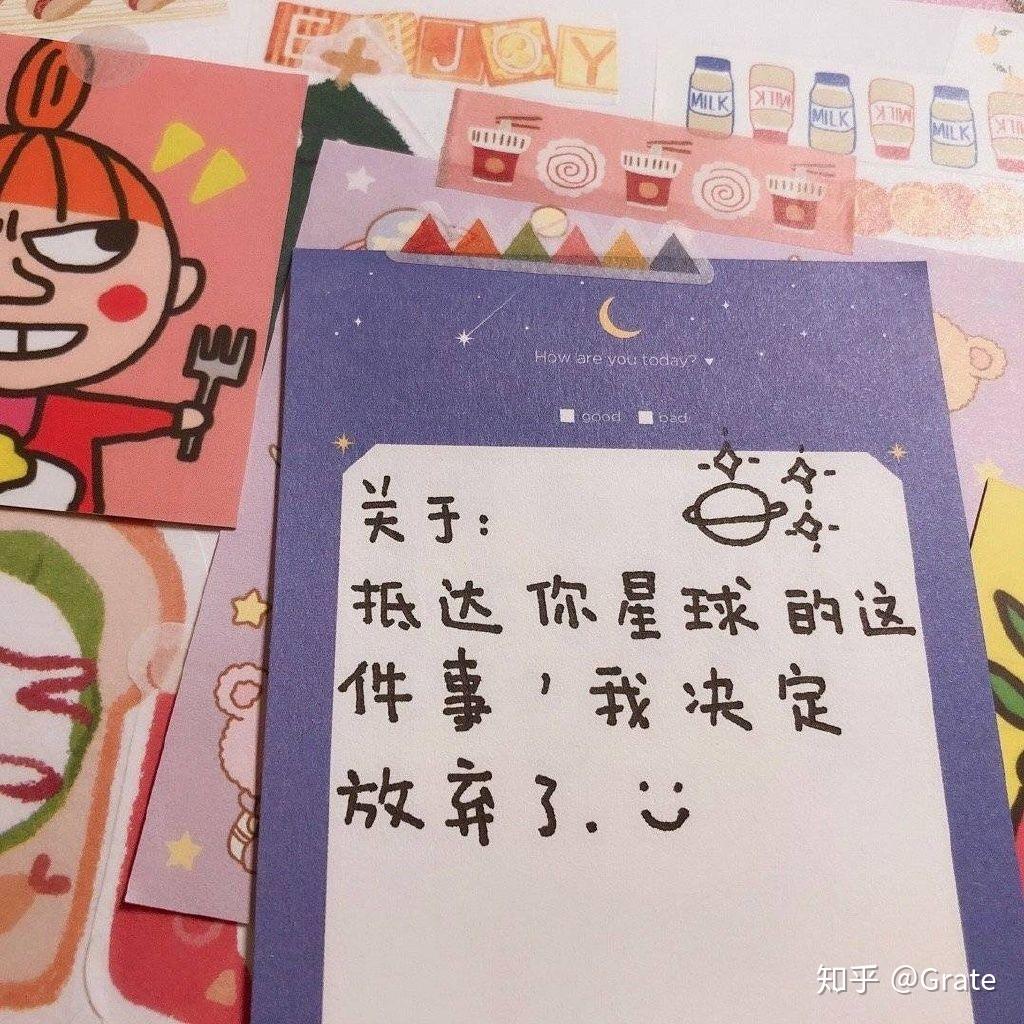 ENJOY
MILK MILK MILK MILK MILK MILK
How are you today?
good bad
关于:
抵达你星球的这
件事，我决定
放弃了.
知乎 @Grate